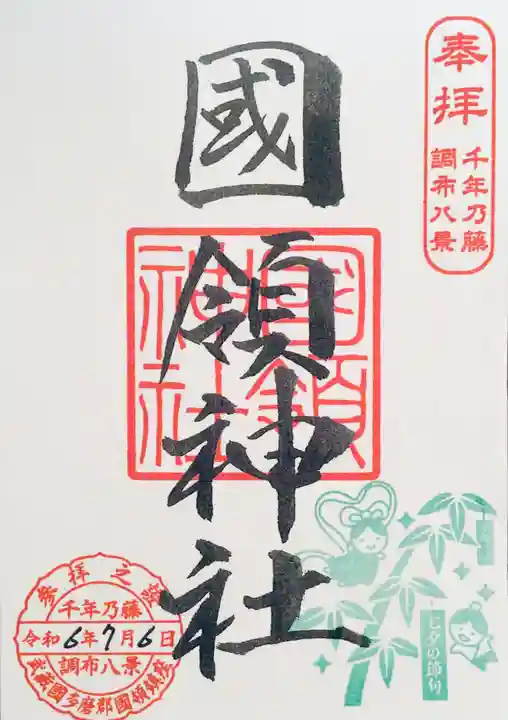 奉拝
千年乃藤
調布八景
國領神社
國領神社
参拝之証
千年乃藤
令和6年7月6日
調布八景
武蔵國多磨郡國領鎮座
七夕の節句